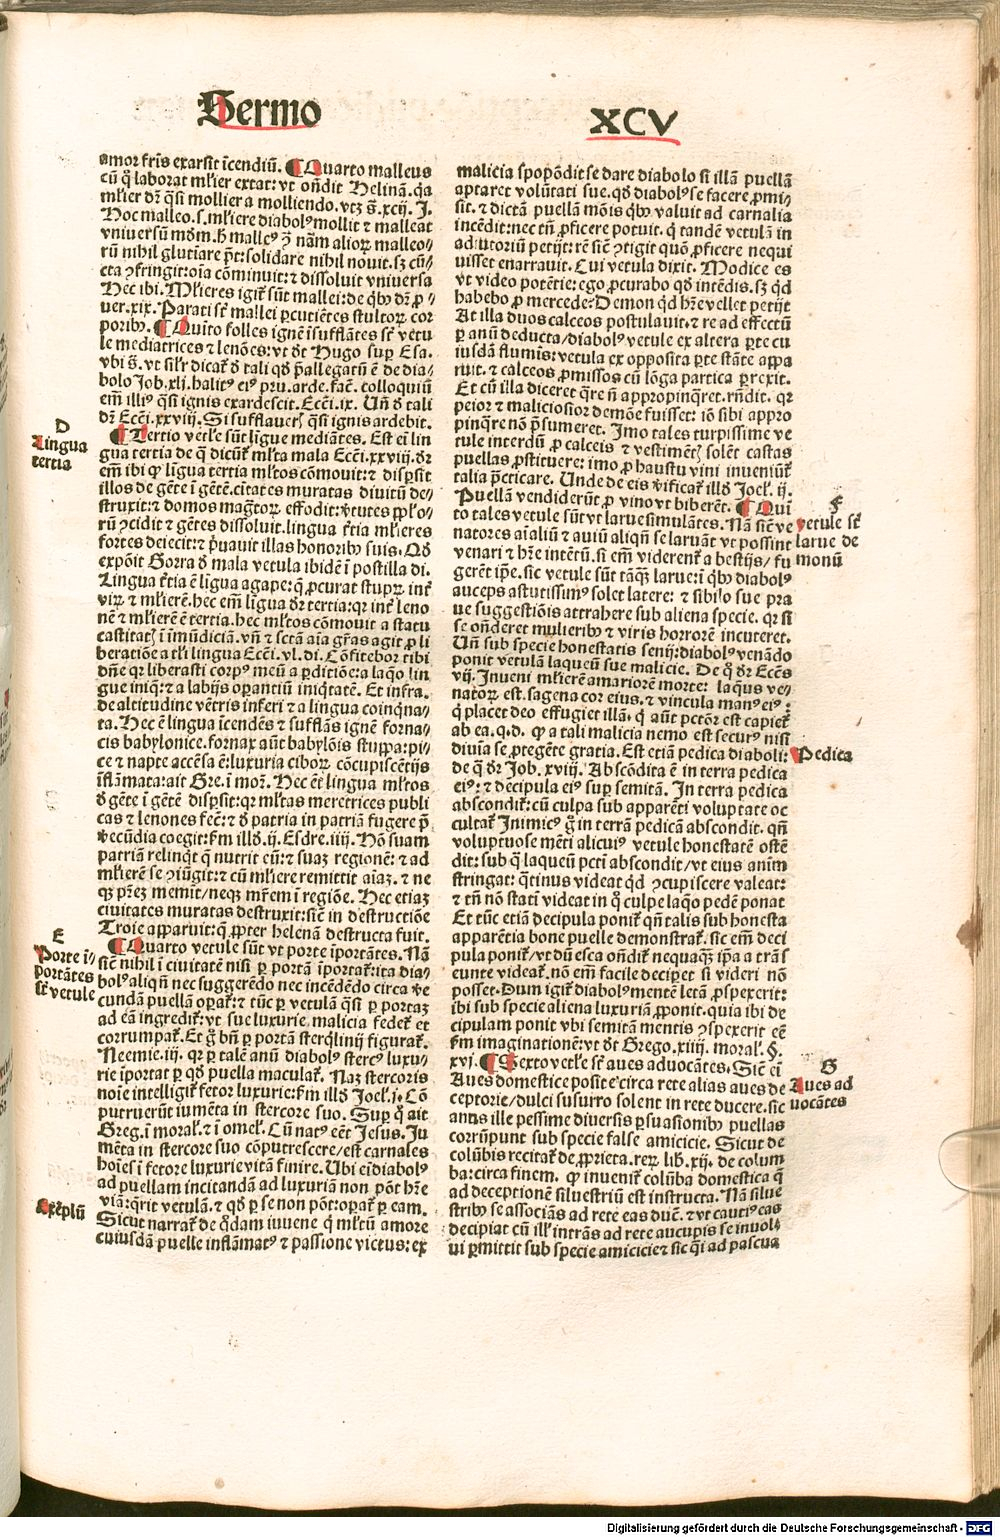 Sermo
XCV
amor fr̃is exarsit ĩcendiũ. ¶ Quarto malleus
cũ q̃ laborat ml'ier extat: vt oñdit Helinã. q̃a
ml'ier dr̃ q̃si mollier a molliendo. vtz s̃. xcij. J.
Hoc malleo .s. ml'iere diabolꝰ mollit ⁊ malleat
rũ nihil glutiare p̃t: solidare nihil nouit. sz cũ-
cta ꝯfringit: oĩa cõminuit: ⁊ dissoluit vniuersa
Hec ibi. Ml'ieres igit̃ sũt mallei: de qb̃ꝰ dr̃ ꝓ-
uer. xix. Parati st̃ mallei ꝑcutiẽtes stultoꝝ cor
poribꝰ. ¶ Quito folles ignẽ ĩsufflãtes st̃ vetu
le mediatrices ⁊ lenões: vt dt̃ Hugo suꝑ Esa.
bolo Job. xlj. halitꝰ eiꝰ pru. arde. faẽ. colloquiũ
em̃ illiꝰ q̃si ignis exardescit. Ecc̃i. ix. Uñ d̃ tali
dr̃ Ecc̃i. xxviij. Si sufflauer̃ q̃si ignis ardebit.
¶ Tertio vetl'e sũt lĩgue mediãtes. Est em̃ lin
gua tertia de q̃ dicũt̃ ml'ta mala Ecc̃i. xxviij. dr̃
em̃ ibi ꝙ lĩgua tertia ml'tos cõmouit: ⁊ disp̃sit
illos de gẽte ĩ gẽtẽ. citates muratas diuitũ de-
struxit: ⁊ domos magtoꝝ effodit: v̾tutes ppl'o-
rũ ꝯcidit ⁊ gẽtes dissoluit. lingua t̃tia ml'ieres
fortes deiecit: ⁊ p̃uauit illas honoribꝰ suis. Qd̃
expõit Gorra d̃ mala vetula ibidẽ ĩ postilla di.
Lingua t̃tia ẽ lĩgua agape: q̃ ꝓcurat stupꝝ int̃
virꝝ ⁊ ml'ierẽ. hec em̃ lĩgua dr̃ tertia: qr int̃ leno
nẽ ⁊ ml'ierẽ ẽ tertia. hec ml'tos cõmouit a statu
castitatꝭ ĩ ĩmũdiciã. vñ ⁊ sctã aĩa gr̃as agit ꝓ li
beratiõe a tl'i lingua Ecc̃i. vl. di. Cõfitebor tibi
dñe qr liberasti corpꝰ meũ a ꝑditiõe: a laq̃o lin
gue iniq̃: ⁊ a labijs oꝑantiũ iniq̃tatẽ. Et infra.
de altitudine vẽtris inferi ⁊ a lingua coinq̃na-
ta. Hec ẽ lingua ĩcendẽs ⁊ sufflãs ignẽ forna-
cis babylonice. fornax aũt babylõis stuppa: pi-
ce ⁊ napte accẽsa ẽ: luxuria ciboꝝ cõcupiscẽtijs
ĩflãmata: ait Gre. ĩ mor̃. Hec ẽt lingua ml'tos
d̃ gẽte ĩ gẽtẽ disp̃sit: qr ml'tas meretrices publi
cas ⁊ lenones fec̃: ⁊ d̃ patria in patriã fugere p̃
v̾ecũdia coegit: f̃m illd̃ .ij. Esdre. iiij. Hõ suam
patriam relinq̃t q̃ nutrit eũ: ⁊ suaꝫ regionẽ: ⁊ ad
ml'ierẽ se ꝯiũgit: ⁊ cũ ml'iere remittit aĩaꝫ. ⁊ ne
qꝫ p̃rẽꝫ memĩt/ neqꝫ mr̃em ĩ regiõe. Hec etiaꝫ
ciuitates muratas destruxit: sic̃ in destructiõe
Troie apparuit: q̃ ꝓpter helenã destructa fuit.
¶ Quarto vetule sũt vt porte ĩportãtes. Nã
sic̃ nihil ĩ ciuitatẽ nisi ꝑ portã ĩportat̃: ita dia-
bolꝰ aliqñ nec suggerẽdo nec incẽdẽdo circa v̾e
cundãm puellã oꝑat̃: ⁊ tũc ꝑ vetulã q̃si ꝑ portaꝫ
ad eã ingredit̃: vt sue luxurie malicia fedet̃ et
corrumpat̃. Et g̃ bñ ꝑ portã sterq̃linij figurat̃.
Neemie. iij. qr ꝑ talẽ anũ diabolꝰ stercꝰ luxu-
rie ĩportat ꝑ qd̃ puella maculat̃. Naꝫ stercoris
noĩe intelligit̃ fetor luxurie: f̃m illd̃ Joel'. j. Cõ
putruerũt iumẽta in stercore suo. Suꝑ q̃ ait
Greg. ĩ moral'. ⁊ ĩ omel'. Cũ natꝰ eẽt Jesus. Ju
mẽta in stercore suo cõputrescere/ est carnales
hoĩes ĩ fetore luxurie vitã finire. Ubi em̃ diabolꝰ
ad puellam incitandã ad luxuriã non põt hr̃e
viã: q̃rit vetulã. ⁊ qd̃ ꝑ se non põt: oꝑat̃ ꝑ eam.
Sicut narrat̃ de q̃dam iuuene q̃ ml'tũ amore
cuiusdã puelle inflãmatꝰ ⁊ passione victus: ex
D
Lingua
tertia
E
Porte ĩ-
portãtes
st̃ vetule
Exẽplũ
malicia spopõdit se dare diabolo si illã puellã
aptaret volũtati sue. qd̃ diabolꝰ se facere ꝓmi-
sit. ⁊ dictã puellã mõis qb̃ꝰ valuit ad carnalia
incẽdit: nec tñ ꝓficere potuit. q̃ tandẽ vetulã in
adiutoriũ petijt: rẽ sic̃ ꝯtigit quõ ꝓficere nequi
uisset enarrauit. Cui vetula dixit. Modice es
vt video potẽtie: ego ꝓcurabo qd̃ intẽdis. sz qd̃
habebo ꝓ mercede: Demon qd̃ hr̃e vellet petijt
At illa duos calceos postulauit. ⁊ re ad effectũ
ꝑ anũ deducta/ diabolꝰ vetule ex altera ꝑte cu
iusdã flumĩs: vetula ex opposita ꝑte stãte appa
ruit. ⁊ calceos ꝓmissos cũ lõga partica ꝑrexit.
Et cũ illa diceret q̃re ñ appropinq̃ret. rñdit. qr
peior ⁊ maliciosior demõe fuisset: iõ sibi appro
pinq̃re nõ p̃sumeret. Imo tales turpissime ve
tule interdũ ꝓ calceis ⁊ vestimẽtꝭ solẽt castas
puellas ꝓstituere: imo ꝓ haustu vini inueniũt̃
talia p̃cticare. Unde de eis v̾ificat̃ illd̃ Joel'. ij.
Puellã vendiderũt ꝓ vino vt biberẽt. ¶ Qui
to tales vetule sũt vt larue simulãtes. Nã sic̃ ve
natores aĩaliũ ⁊ auiũ aliqñ se laruãt vt possint
venari ⁊ hr̃e intẽtũ. si em̃ viderent̃ a bestijs/ fu
gerẽt ip̃e. sic vetule sũt tãq̃ꝫ larue: ĩ qb̃ꝰ diabolꝰ
auceps astutissimꝰ solet latere: ⁊ sibilo sue pra
ue suggestiõis attrahere sub aliena specie. qr si
se oñderet mulieribꝰ ⁊ viris horrorẽ incuteret.
Uñ sub specie honestatis senij: diabolꝰ venãdo
ponit vetulã laqueũ sue malicie. De q̃ dr̃ Ecc̃s
vij. Inueni ml'ierẽ amariorẽ morte: laqus ve-
natoꝝ est. sagena cor eius. ⁊ vincula manꝰ eiꝰ:
q̃ placet deo effugiet illã. q̃ aũt pctõr est capiet̃
ab ea. q. d. ꝙ a tali malicia nemo est securꝰ nisi
diuĩa se ꝓtegẽte gratia. Est etiã pedica diaboli:
de q̃ dr̃ Job. xviij. Abscõdita ẽ in terra pedica
eiꝰ: ⁊ decipula eiꝰ suꝑ semitã. In terra pedica
abscondit̃: cũ culpa sub apparẽti voluptate oc
cultat̃. Inimicꝰ g̃ in terrã pedicã abscondit. qñ
voluptuose mẽti alicuiꝰ vetule honestatẽ ostẽ
dit: sub q̃ laqueũ pcti abscondit/ vt eius anim
stringat: q̃tinus videat qd̃ ꝯcupiscere valeat:
⁊ tñ nõ statĩ videat in q̃ culpe laq̃o pedẽ ponat
Et tũc etiã decipula ponit̃ qñ talis sub honesta
apparẽtia bone puelle demonstrat̃. sic em̃ deci
pula ponit̃/ vt dũ esca oñdit̃ nequaq̃ꝫ ip̃a a trãs
eunte videat̃. nõ em̃ facile decipet si videri nõ
posset. Dum igit̃ diabolꝰ mentẽ letã ꝓspexerit:
ibi sub specie aliena luxuriã ꝓponit. quia ibi de
cipulam ponit vbi semitã mentis ꝯspexerit eẽ
f̃m imaginationẽ: vt dt̃ Grego. xiiij. moral'. §.
xvj. ¶ Sexto vetl'e st̃ aues aduocãtes. Sic̃ em̃
Aues domestice posite circa rete alias aues de
ceptorie/ dulci susurro solent in rete ducere. sic
anus ille pessime diuersis ꝑsuasionibꝰ puellas
corrũpunt sub specie false amicicie. Sicut de
colũbis recitat̃ de ꝓprieta. reꝝ. lib. xij. de colum
ba: circa finem. ꝙ inuenit̃ colũba domestica q̃
ad deceptionẽ siluestriũ est instructa. Nã silue
stribꝰ se associãs ad rete eas duc̃. ⁊ vt cautiꝰ eas
decipiat cũ ill' intrãs ad rete aucupis se inuol
ui ꝑmittit sub specie amicicie ⁊ sic q̃i ad pascua
F
vetule st̃
larue de
monũ
Pedica
G
Aues ad
uocãtes
Digitalisierung gefördert durch die Deutsche Forschungsgemeinschaft - DFG